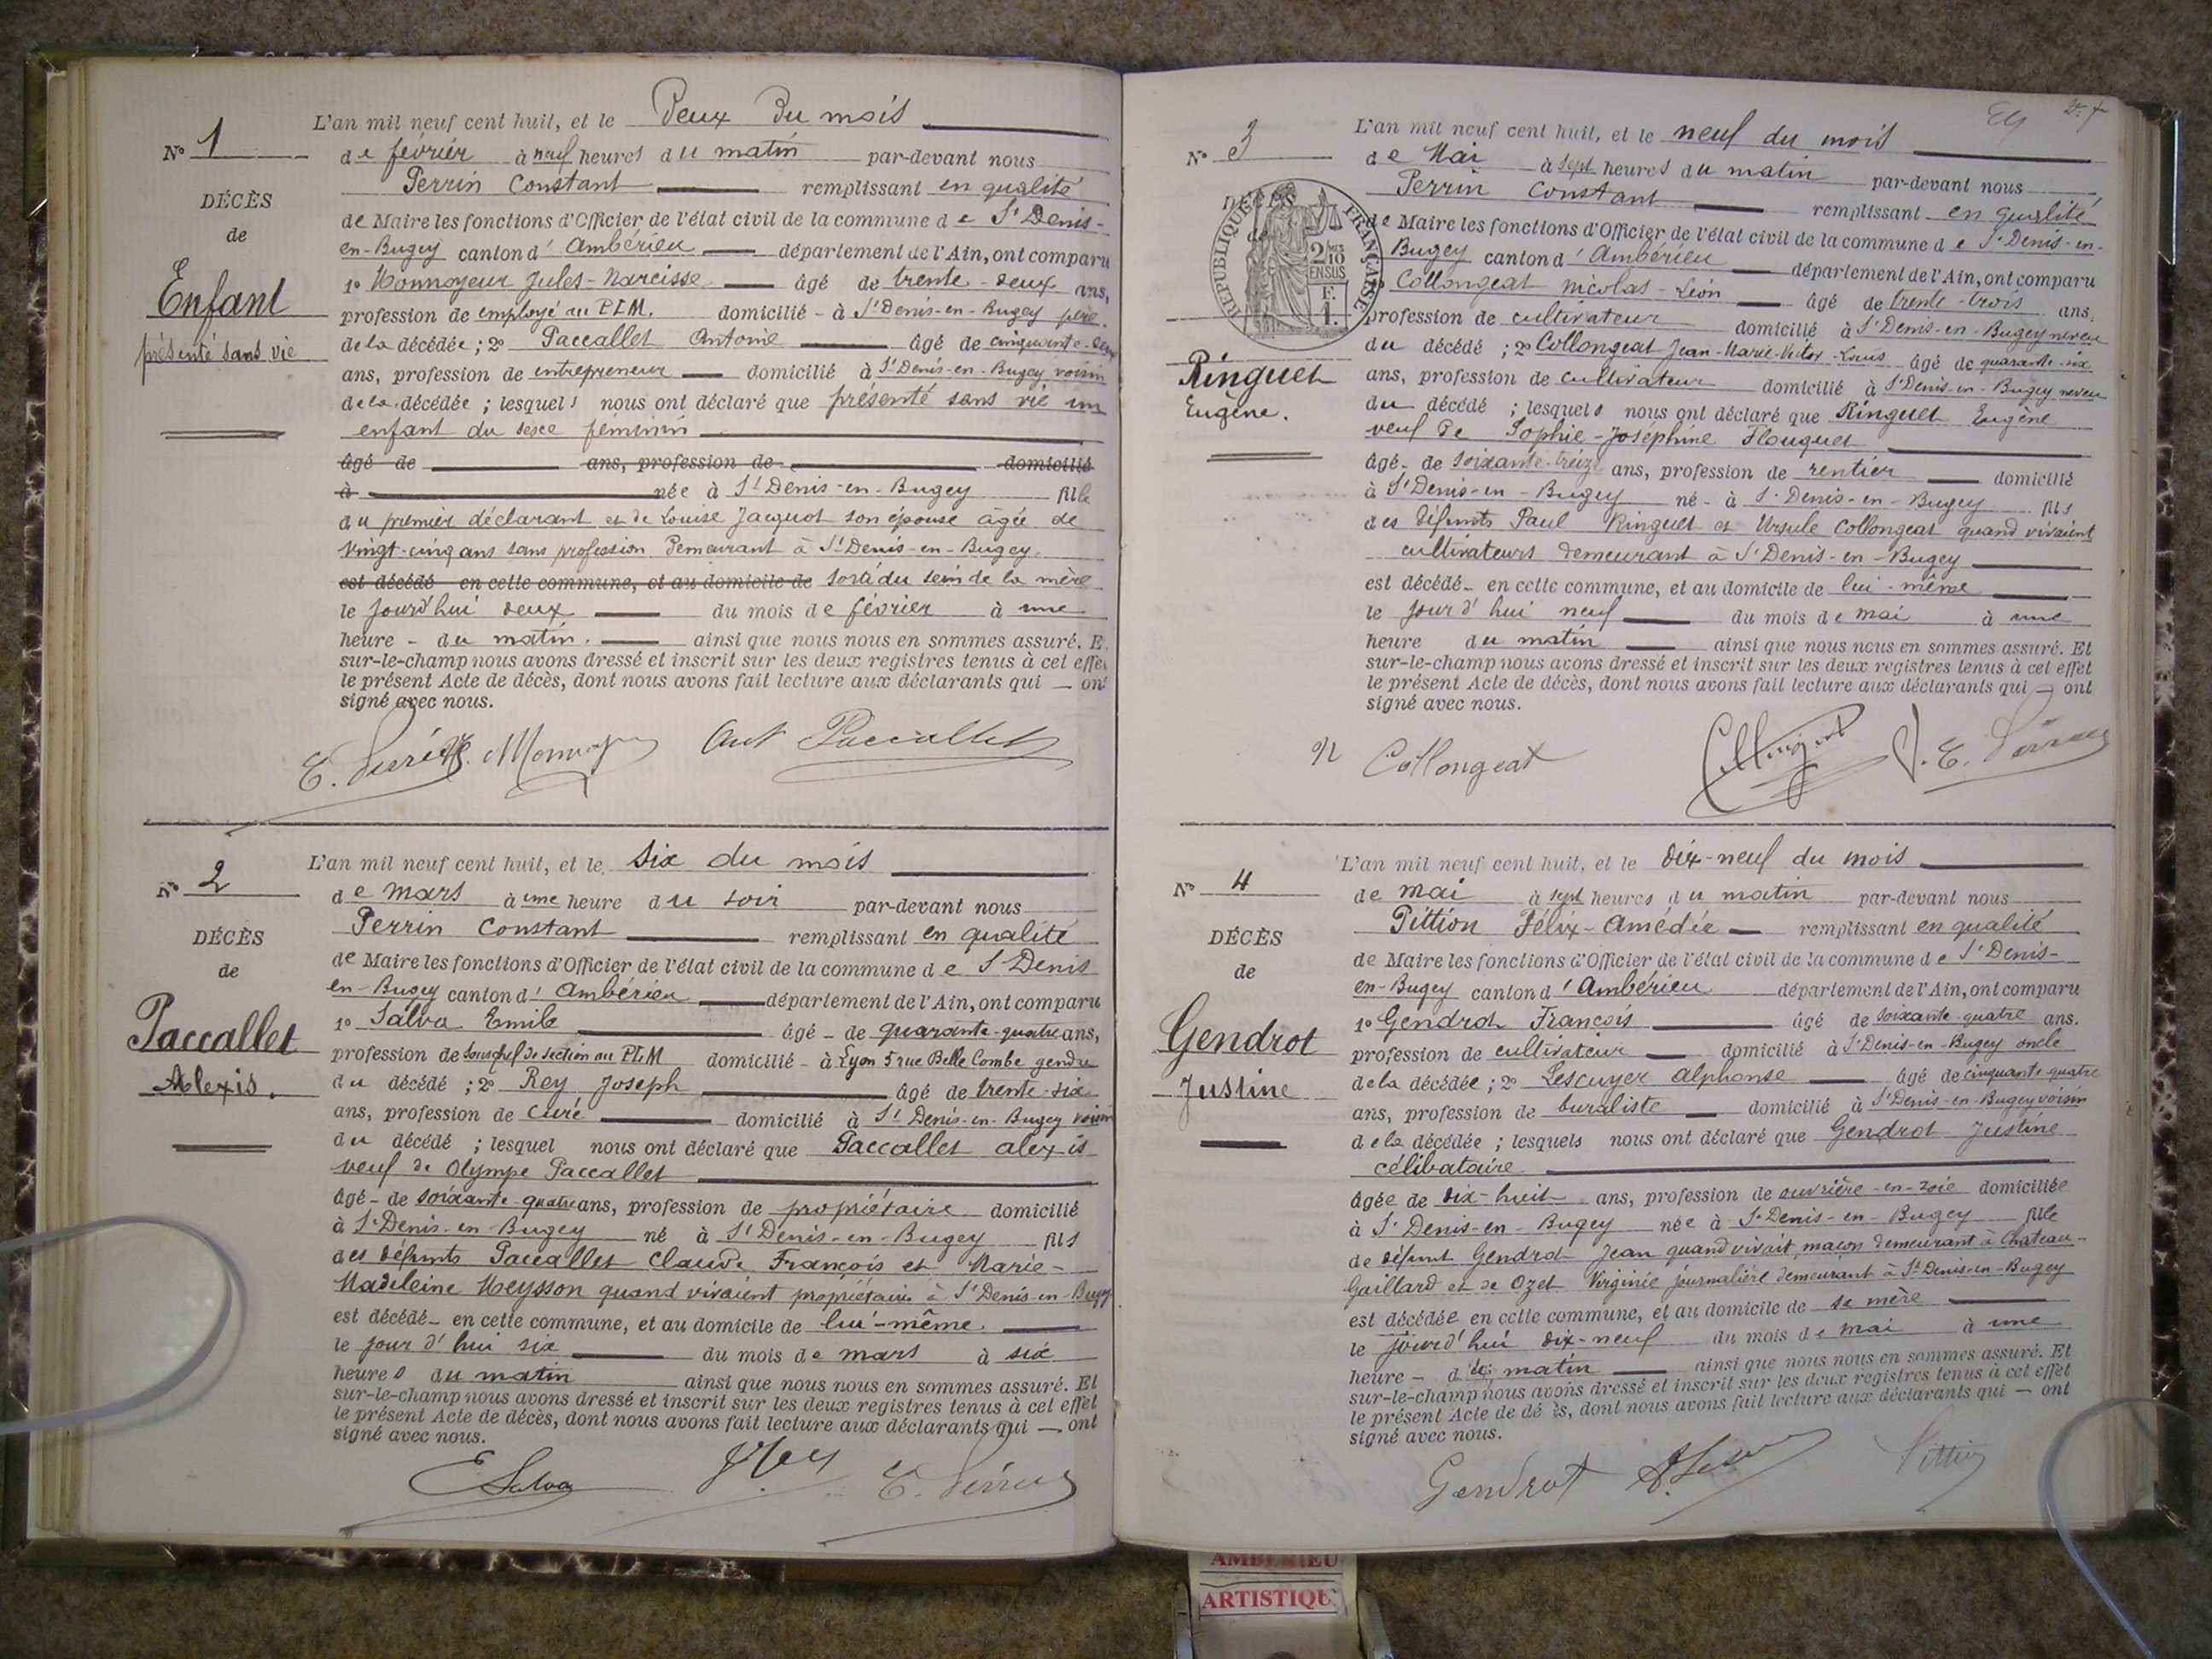 N° 1
DÉCÈS
de
Enfant
présenté sans vie
L'an mil neuf cent huit, et le Deux du mois
de février à neuf heures du matin par-devant nous
Perrin Constant remplissant en qualité
de Maire les fonctions d'Officier de l'état civil de la commune de St Denis-
en-Bugey canton d'Ambérieu département de l'Ain, ont comparu
1° Monnoyeur Jules-Narcisse âgé de trente-deux ans,
profession de employé au PLM. domicilié - à St Denis-en-Bugey père
de la décédée ; 2° Paccallet Antoine âgé de cinquante-deux
ans, profession de entrepreneur domicilié à St Denis-en-Bugey voisin
de la décédée ; lesquels nous ont déclaré que présenté sans vie un
enfant du sexe féminin
âgé de ans, profession de domicilié
à née à St Denis-en-Bugey fille
du premier déclarant et de Louise Jacquot son épouse âgée de
vingt-cinq ans sans profession demeurant à St Denis-en-Bugey.
est décédé en cette commune, et au domicile de sorti du sein de la mère
le jourd'hui deux du mois de février à une
heure - du matin. ainsi que nous nous en sommes assuré. E
sur-le-champ nous avons dressé et inscrit sur les deux registres tenus à cet effet
le présent Acte de décès, dont nous avons fait lecture aux déclarants qui — ont
signé avec nous.
Ant Paccallet
N° 2
DÉCÈS
de
Paccallet
Alexis.
L'an mil neuf cent huit, et le six du mois
de mars à une heure du soir par-devant nous
Perrin Constant remplissant en qualité
de Maire les fonctions d'Officier de l'état civil de la commune de St Denis
en-Bugey canton d'Ambérieu département de l'Ain, ont comparu
1° Salva Emile âgé - de quarante-quatre ans,
profession de sous chef de section au PLM domicilié - à Lyon 5 rue Belle Combe gendre
du décédé ; 2° Rey Joseph âgé de trente-six
ans, profession de curé domicilié à St Denis-en-Bugey voisin
du décédé ; lesquel nous ont déclaré que Paccallet alexis
veuf de Olympe Paccallet
âgé - de soixante-quatre ans, profession de propriétaire domicilié
à St Denis-en-Bugey né à St Denis-en-Bugey fils
des défunts Paccallet Claude François et Marie-
Madeleine Meysson quand vivaient propriétaires à St Denis-en-Bugey
est décédé - en cette commune, et au domicile de lui-même.
le jour d'hui six du mois de mars à six
heures du matin ainsi que nous nous en sommes assuré. Et
sur-le-champ nous avons dressé et inscrit sur les deux registres tenus à cet effet
le présent Acte de décès, dont nous avons fait lecture aux déclarants qui — ont
signé avec nous.
E Salva
N° 3
DÉCÈS
RÉPUBLIQUE FRANÇAISE
2/10 EN SUS
Ringuet
Eugène.
L'an mil neuf cent huit, et le neuf du mois
de Mai à sept heures du matin par-devant nous
Perrin Constant remplissant en qualité
de Maire les fonctions d'Officier de l'état civil de la commune de St Denis-en-
Bugey canton d'Ambérieu département de l'Ain, ont comparu
Collongeat nicolas-Léon âgé de trente-trois ans,
profession de cultivateur domicilié à St Denis-en-Bugey neveu
du décédé ; 2° Collongeat Jean-Marie-Victor-Louis âgé de quarante-six
ans, profession de cultivateur domicilié à St Denis-en-Bugey neveu
du décédé ; lesquels nous ont déclaré que Ringuet Eugène
veuf de Sophie-Joséphine Flouquet
âgé - de soixante-treize ans, profession de rentier domicilié
à St Denis-en-Bugey né - à St Denis-en-Bugey fils
des défunts Paul Ringuet et Ursule Collongeat quand vivaient
cultivateurs demeurant à St Denis-en-Bugey
est décédé - en cette commune, et au domicile de lui-même
le jour d'hui neuf du mois de mai à une
heure du matin ainsi que nous nous en sommes assuré. Et
sur-le-champ nous avons dressé et inscrit sur les deux registres tenus à cet effet
le présent Acte de décès, dont nous avons fait lecture aux déclarants qui — ont
signé avec nous.
Collongeat
N° 4
DÉCÈS
de
Gendrot
Justine
L'an mil neuf cent huit, et le dix-neuf du mois
de mai à sept heures du matin par-devant nous
Pittion Félix-Amédée remplissant en qualité
de Maire les fonctions d'Officier de l'état civil de la commune de St Denis-
en-Bugey canton d'Ambérieu département de l'Ain, ont comparu
1° Gendrot François âgé de soixante-quatre ans.
profession de cultivateur domicilié à St Denis-en-Bugey oncle
de la décédée ; 2° Lescuyer alphonse âgé de cinquante-quatre
ans, profession de buraliste domicilié à St Denis-en-Bugey voisin
de la décédée ; lesquels nous ont déclaré que Gendrot Justine
célibataire
âgée de dix-huit ans, profession de ouvrière-en-soie domiciliée
à St Denis-en-Bugey née à St Denis-en-Bugey fille
de défunt Gendrot Jean quand vivait maçon demeurant à Chateau-
Gaillard et de Ozet Virginie journalière demeurant à St Denis-en-Bugey
est décédée en cette commune, et au domicile de sa mère
le jourd'hui dix-neuf du mois de mai à une
heure - du matin ainsi que nous nous en sommes assuré. Et
sur-le-champ nous avons dressé et inscrit sur les deux registres tenus à cet effet
le présent Acte de dé ès, dont nous avons fait lecture aux déclarants qui — ont
signé avec nous.
Gendrot
AMBERIEU
ARTISTIQU